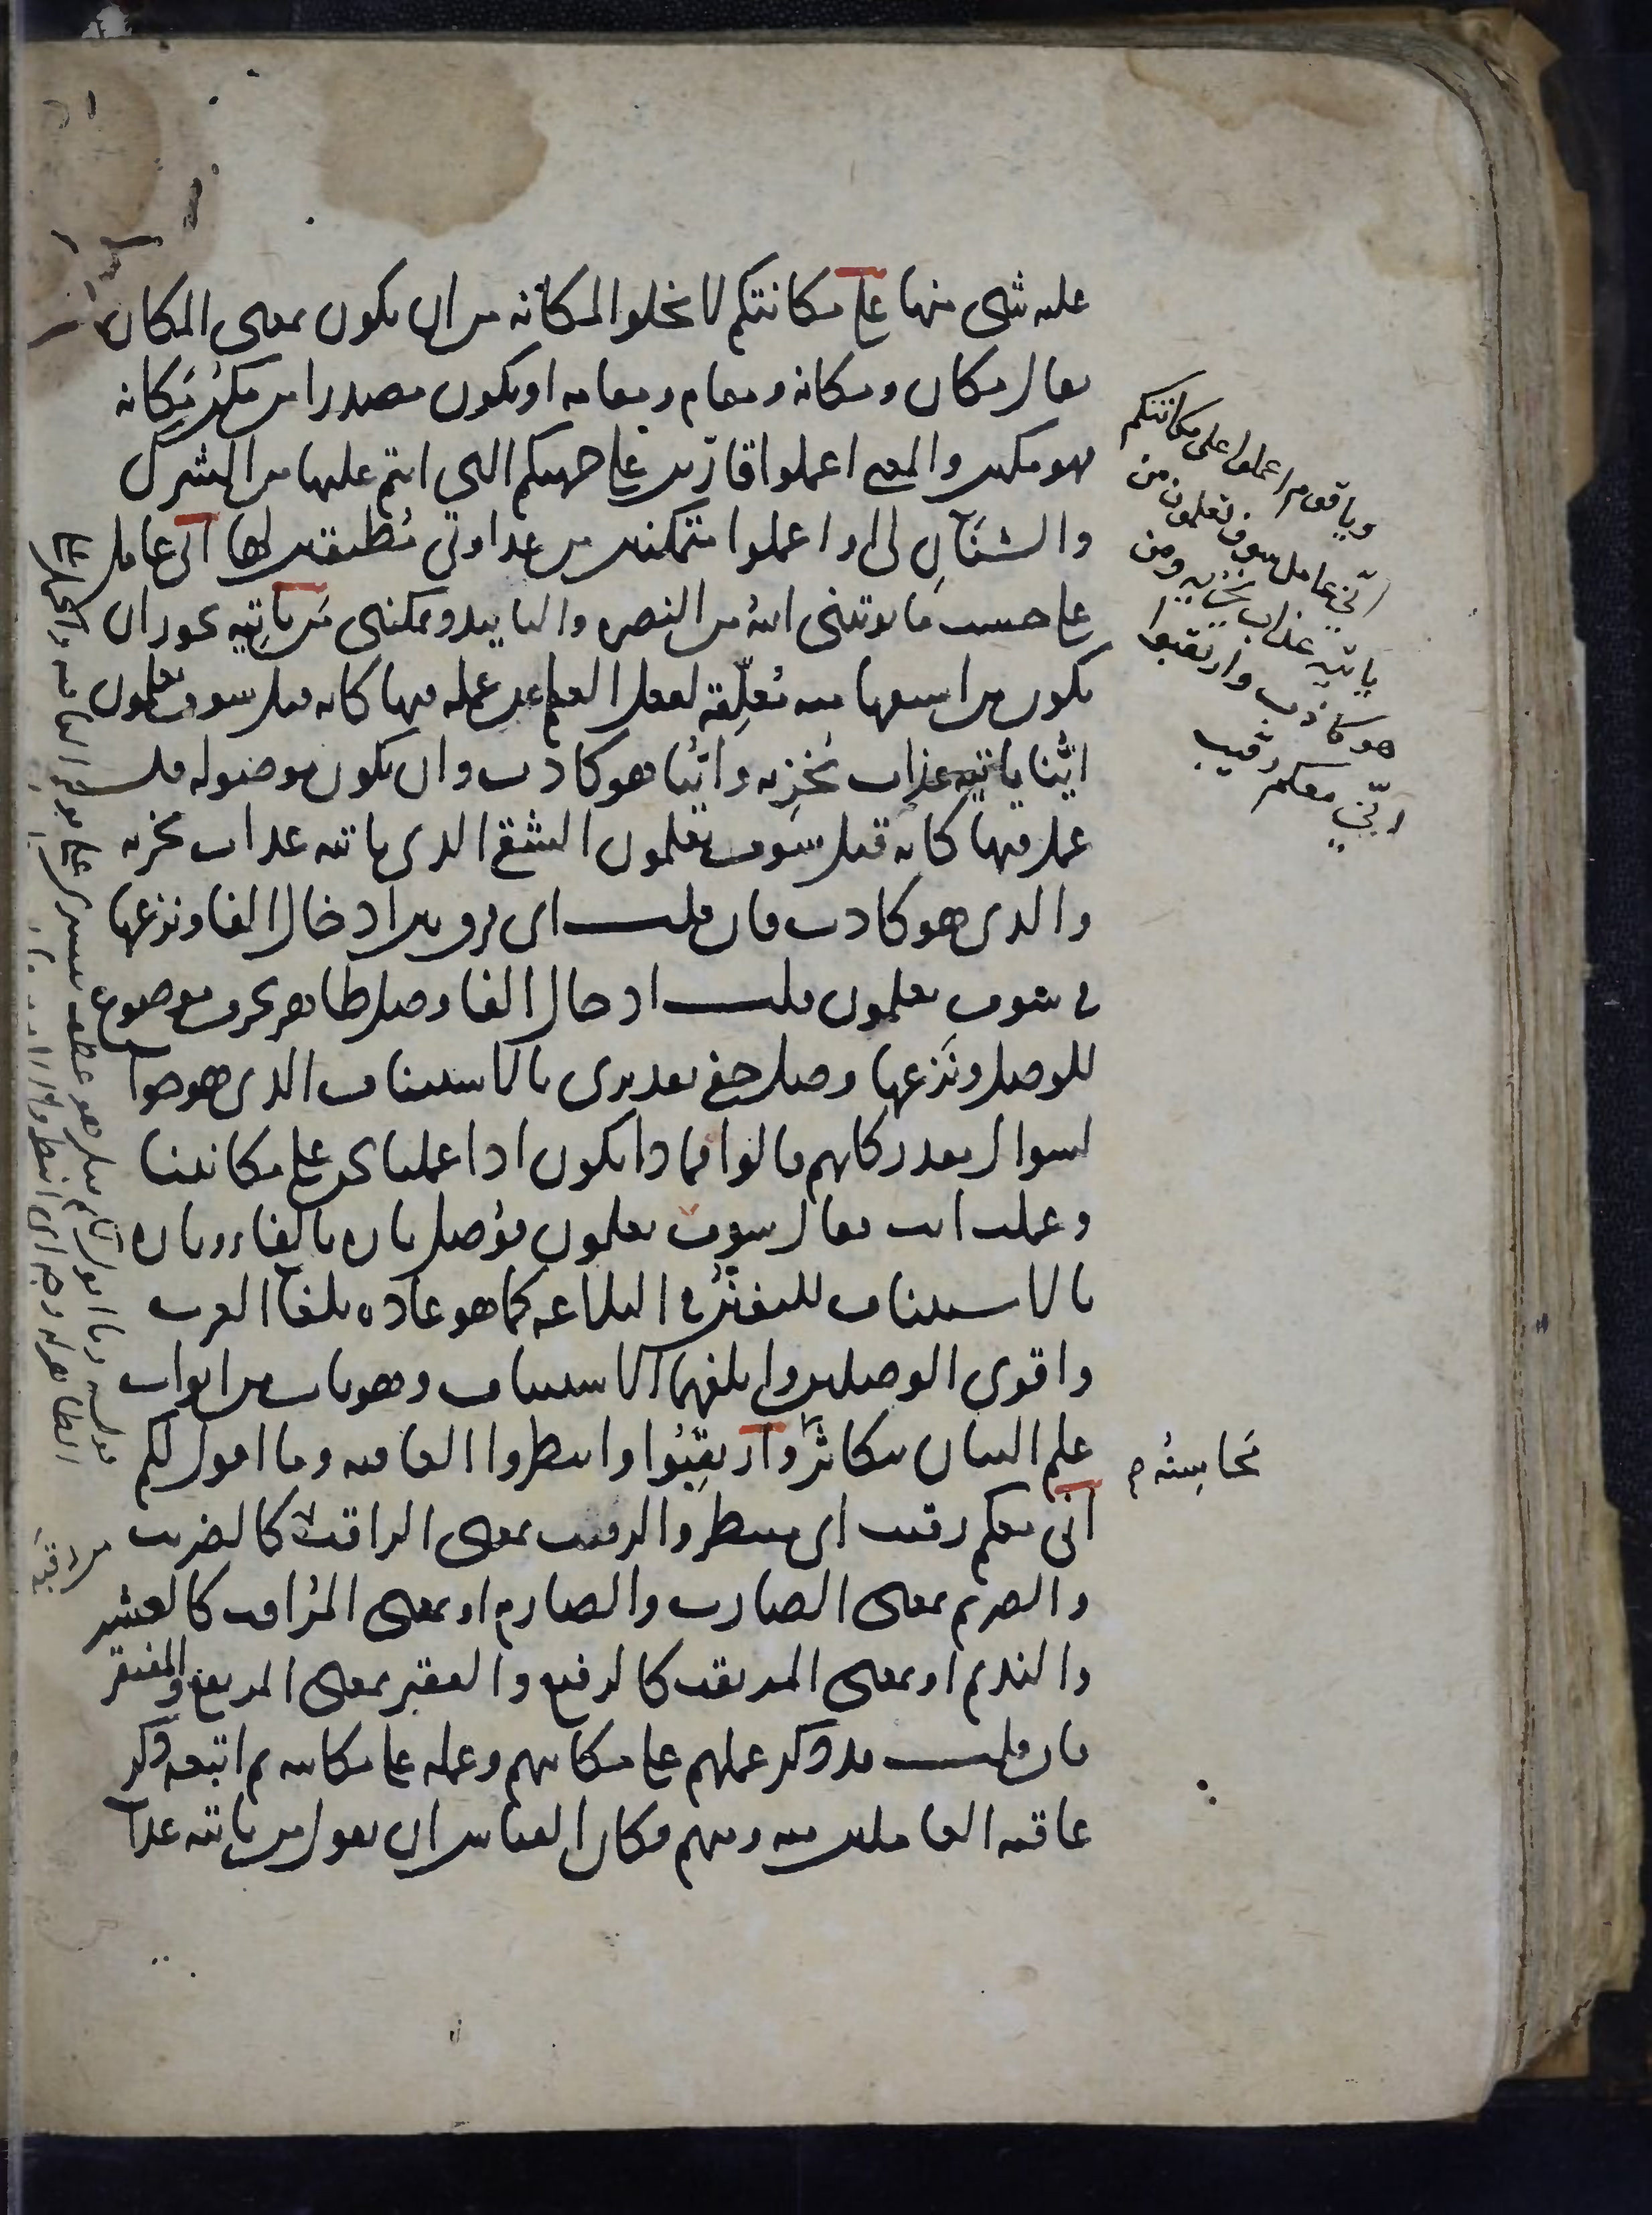 عليه شى منها على مكانتكم لا يخلو المكانة من ان يكون بمعنى المكان
يقال مكان ومكانة ومقام ومقامة او يكون مصدرا من مكن مكانة
فهو مكين والمعنى اعملوا قارين على جهتكم التى انتم عليها من الشرك
والشنآن لى او اعملوا متمكنين من عداوتى مطيقين لها انى عامل
على حسب ما يوتينى الله من النصرة والتاييد ويمكننى من ياتيه يجوز ان
يكون من استفهامية معلقة لفعل العلم عن عمله فيها كانه قيل سوف تعلمون
اينا ياتيه عذاب يخزيه واينا هو كاذب وان يكون موصولة قد
عمل فيها كانه قيل سوف تعلمون الشقى الذى ياتيه عذاب يخزيه
والذى هو كاذب فان قلت اى فرق بين ادخال الفا ونزعها
فى سوف تعلمون قلت ادخال الفا وصل ظاهر بحرف موضوع
للوصل ونزعها وصل خفى تقديرى بالاستيناف الذى هو جوا
لسوال مقدر كانهم قالوا فماذا يكون اذا عملنا نحن على مكانتنا
وعملت انت فقال سوف تعلمون فوصل تارة بالفاء وتارة
بالاستيناف للتفنن فى البلاغة كما هو عادة بلغا العرب
واقوى الوصلين وابلغهما الاستيناف وهو باب من ابواب
علم البيان تتكاثر وارتقبوا وانتظروا العاقبة وما اقول لكم
انى معكم رقيب اى منتظر والرقيب بمعنى الراقب كالضريب
والصريم بمعنى الضارب والصارم او بمعنى المراقب كالعشير
والنديم او بمعنى المرتقب كالرفيع والفقير بمعنى المرتفع والمفتقر
فان قلت قد ذكر عملهم على مكانتهم وعمله على مكانته ثم اتبعه ذكر
عاقبة العاملين منه ومنهم فكان القياس ان يقول من ياتيه عذا
ويا قوم اعملوا على مكانتكم
انى عامل سوف تعلمون من
ياتيه عذاب يخزيه ومن
هو كاذب وارتقبوا
انى معكم رقيب
محاسنه م